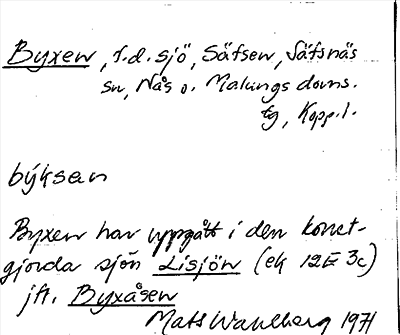 Byxen, f.d. sjö, Säfsen, Säfsnäs
sn, Nås o. Malungs doms.
tg, Kopp. l.
býksan
Byxen har uppgått i den konst-
gjorda sjön Lisjön (ek 12E 3c)
jfr. Byxåsen
Mats Wahlberg 1971